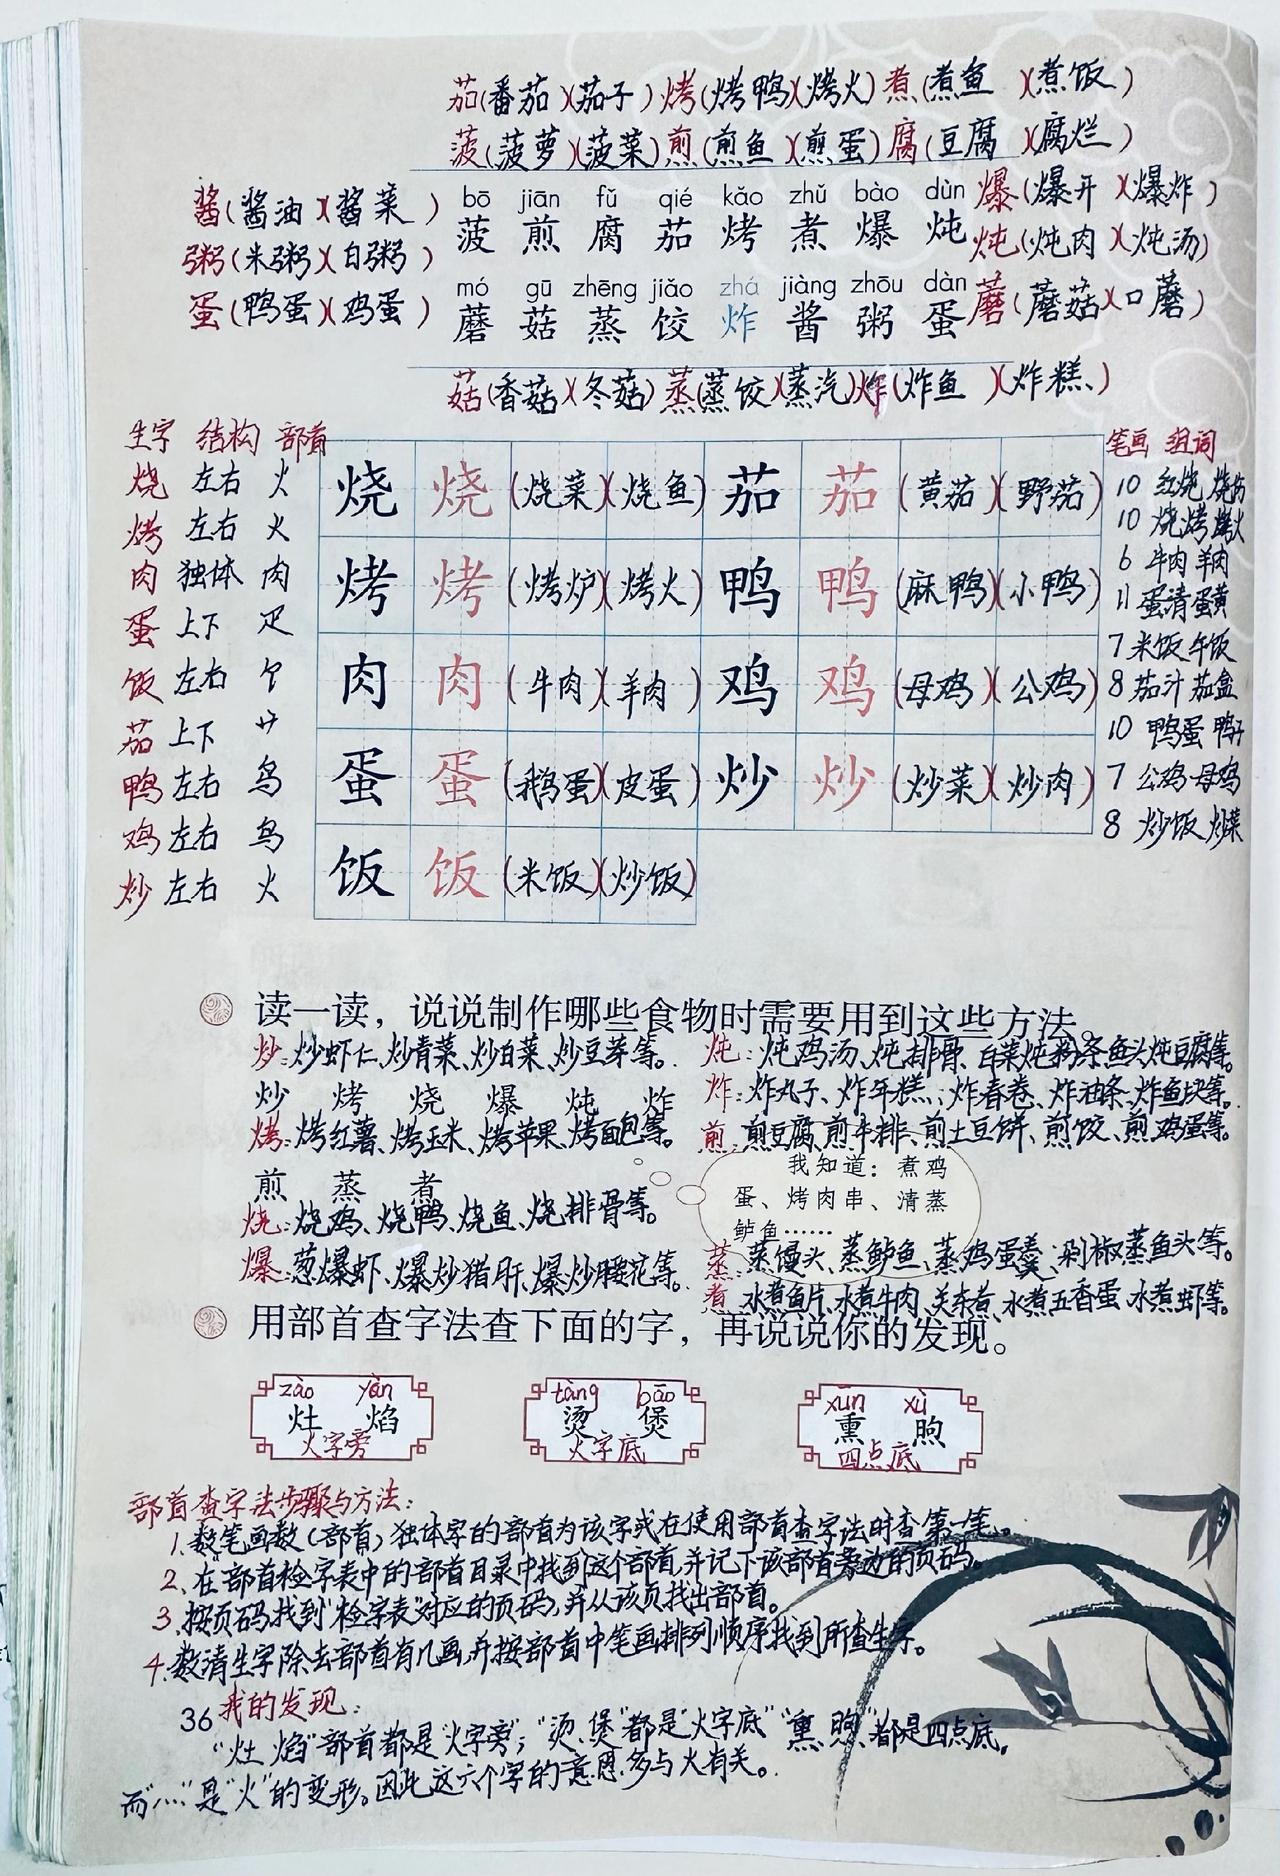 茄(番茄)(茄子) 烤(烤鸭)(烤火) 煮(煮鱼)(煮饭)
菠(菠萝)(菠菜) 煎(煎鱼)(煎蛋) 腐(豆腐)(腐烂)
酱(酱油)(酱菜)
粥(米粥)(白粥)
蛋(鸭蛋)(鸡蛋)
bō jiān fǔ qié kǎo zhǔ bào dùn
菠 煎 腐 茄 烤 煮 爆 炖
mó gū zhēng jiǎo zhá jiàng zhōu dàn
蘑 菇 蒸 饺 炸 酱 粥 蛋
爆(爆开)(爆炸)
炖(炖肉)(炖汤)
蘑(蘑菇)(口蘑)
菇(香菇)(冬菇) 蒸(蒸饺)(蒸汽) 炸(炸鱼)(炸糕)
生字 结构 部首
烧 左右 火
烤 左右 火
肉 独体 肉
蛋 上下 疋
饭 左右 饣
茄 上下 艹
鸭 左右 鸟
鸡 左右 鸟
炒 左右 火
烧 烧 (烧菜)(烧鱼) 茄 茄 (黄茄)(野茄)
烤 烤 (烤炉)(烤火) 鸭 鸭 (麻鸭)(小鸭)
肉 肉 (牛肉)(羊肉) 鸡 鸡 (母鸡)(公鸡)
蛋 蛋 (鹅蛋)(皮蛋) 炒 炒 (炒菜)(炒肉)
饭 饭 (米饭)(炒饭)
笔画 组词
10 红烧 烧伤
10 烧烤 烤火
6 牛肉 羊肉
11 蛋清 蛋黄
7 米饭 午饭
8 茄汁 茄盒
10 鸭蛋 鸭子
7 公鸡 母鸡
8 炒饭 炒菜
读一读，说说制作哪些食物时需要用到这些方法。
炒:炒虾仁、炒青菜、炒白菜、炒豆芽等。
炒 烤 烧 爆 炖 炸
烤:烤红薯、烤玉米、烤苹果、烤面包等。
煎 蒸 煮
烧:烧鸡、烧鸭、烧鱼、烧排骨等。
爆:葱爆虾、爆炒猪肝、爆炒腰花等。
炖:炖鸡汤、炖排骨、白菜炖粉条、鱼头炖豆腐等。
炸:炸丸子、炸年糕、炸春卷、炸油条、炸鱼块等。
煎:煎豆腐、煎牛排、煎土豆饼、煎饺、煎鸡蛋等。
我知道：煮鸡
蛋、烤肉串、清蒸
鲈鱼……
蒸:蒸馒头、蒸鲈鱼、蒸鸡蛋羹、剁椒蒸鱼头等。
煮:水煮鱼片、水煮牛肉、关东煮、水煮五香蛋、水煮虾等。
用部首查字法查下面的字，再说说你的发现。
zào yàn tàng bāo xūn xù
灶 焰 烫 煲 熏 煦
火字旁 火字底 四点底
部首查字法步骤与方法:
1、数笔画数(部首)独体字的部首为该字或在使用部首查字法时查第一笔。
2、在部首检字表中的部首目录中找到这个部首,并记下该部首旁边的页码。
3、按页码找到"检字表"对应的页码,并从该页找出部首。
4、数清生字除去部首有几画,并按部首中笔画排列顺序找到所查生字。
36 我的发现:
"灶、焰"部首都是"火字旁";"烫、煲"都是"火字底""熏、煦"都是四点底,
而"灬"是"火"的变形。因此这六个字的意思多与火有关。